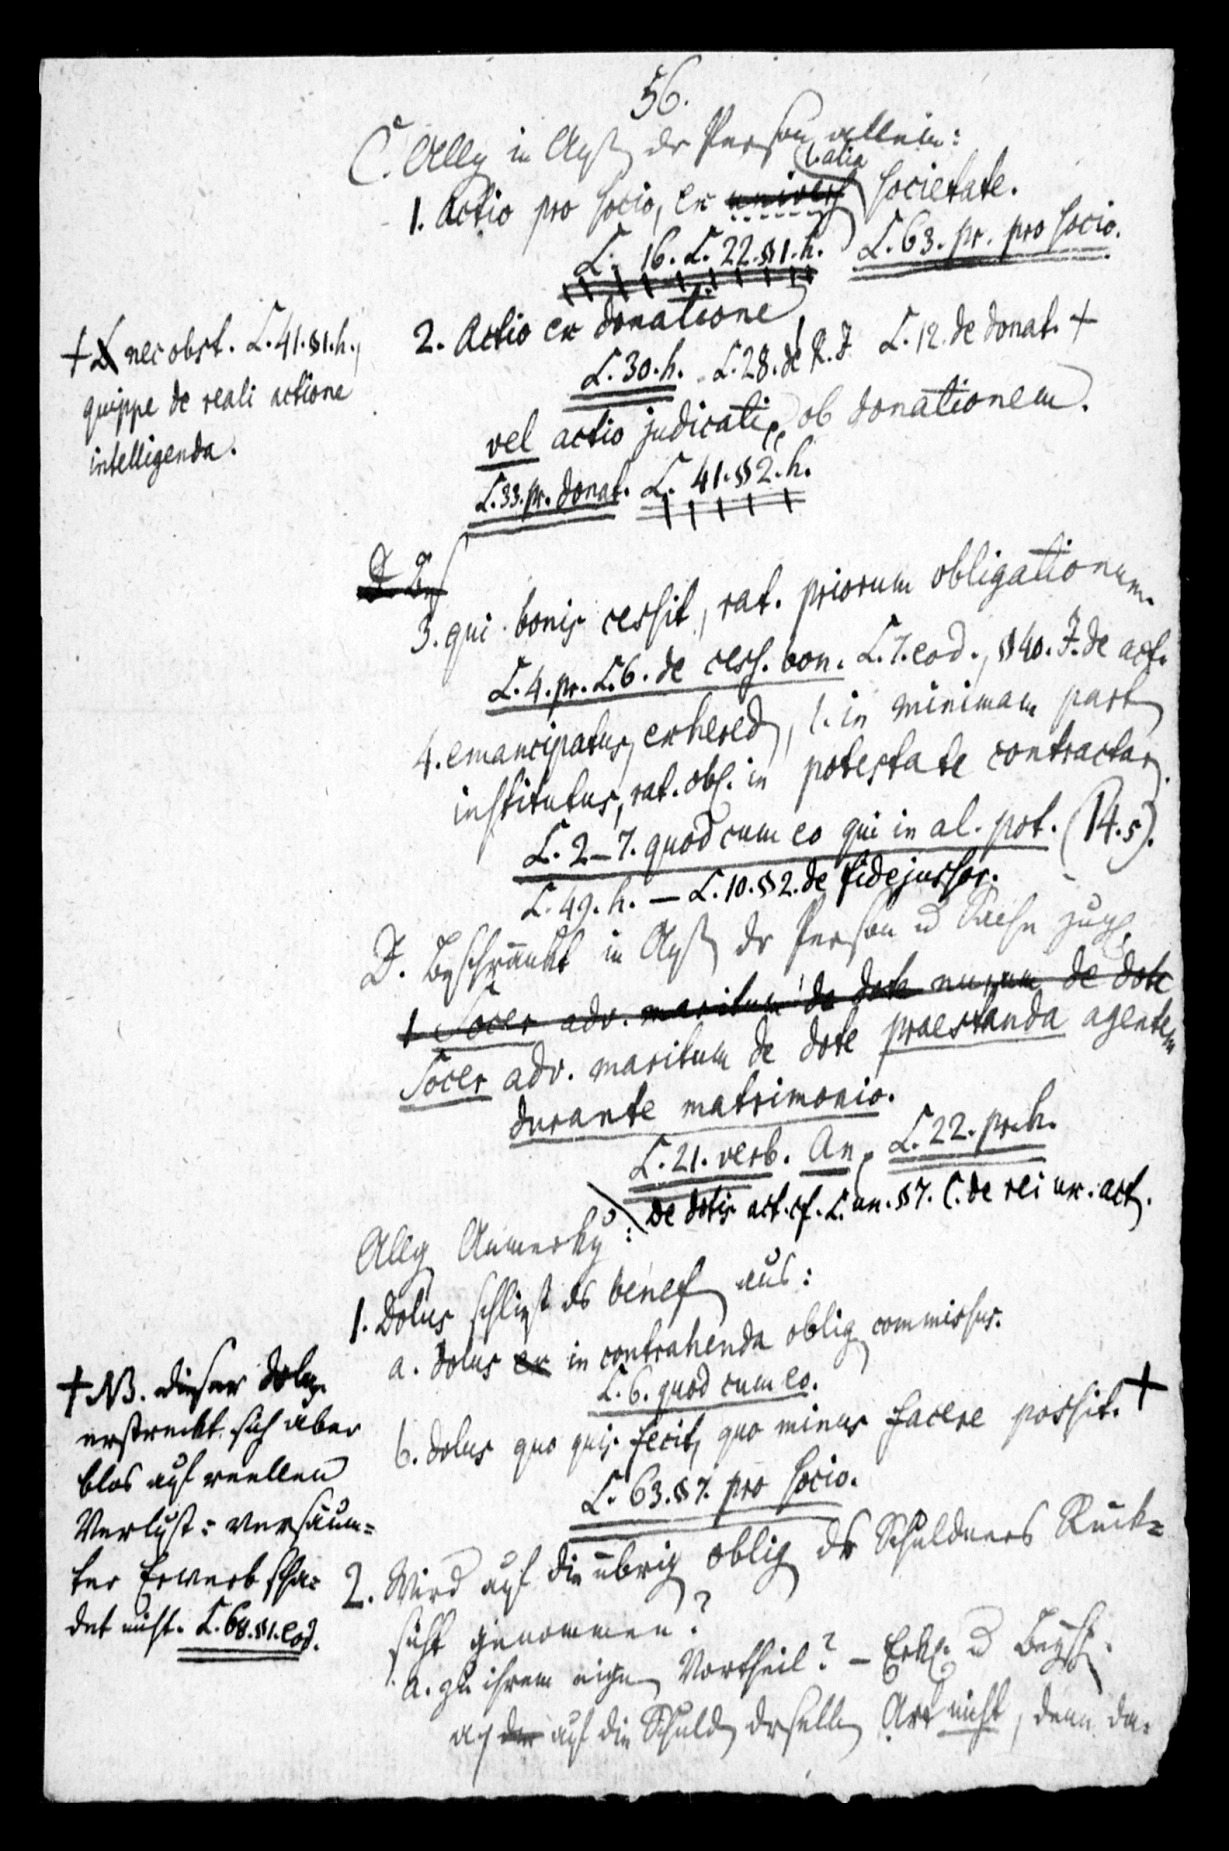 56.
C. Allg in Ansg der Person allein:
1. Actio pro socio, ex univers l. alia societate.
L. 16. L. 22. §1. h. L. 63. pr. pro socio.
2. Actio ex donatione
L. 30. h. L. 28. de R. J. L. 12. de donat. +
vel actio judicati ob donationem.
L. 33. pr. donat. L. 41. §2. h.
+ nec obst. L. 41. §1. h.,
quippe de reali actione
intelligenda.
D. Bes
3. qui bonis cessit, rat. priorum obligationum.
L. 4. pr. L. 6. de cess. bon. L. 7. eod., §40. J. de act.
4. emancipatus, exhered, l. in minimam part
institutus, rat. obl. in potestate contractar.
L. 2–7. quod cum eo qui in al. pot. (14. 5).
L. 49. h. — L. 10. §2. de fidejussor.
D. Beschränkt in Ansg der Person u Sache zug
1 Socer adv. maritum de dote de dote
Socer adv. maritum de dote praestanda agentem
durante matrimonio.
L. 21. verb. An, L. 22. pr. h.
de dotis act. cf. L. un. §7. C. de rei ux. act.
Allg Anmerkg:
1. Dolus schließt das benef aus:
a. dolus ex in contrahenda oblig commissus.
L. 6. quod cum eo.
b. dolus quo quis fecit, quo minus facere possit. +
L. 63. §7. pro socio.
+ NB. dieser dolus
erstreckt sich aber
blos auf reellen
Verlust: versäum=
ter Erwerb scha=
det nicht. L. 68. §1. eod.
2. Wird auf die übrig oblig des Schuldners Rück=
sicht genommen?
a. zu ihrem eign Vortheil? – u
auf die Schuld derselb Art nicht, denn da=